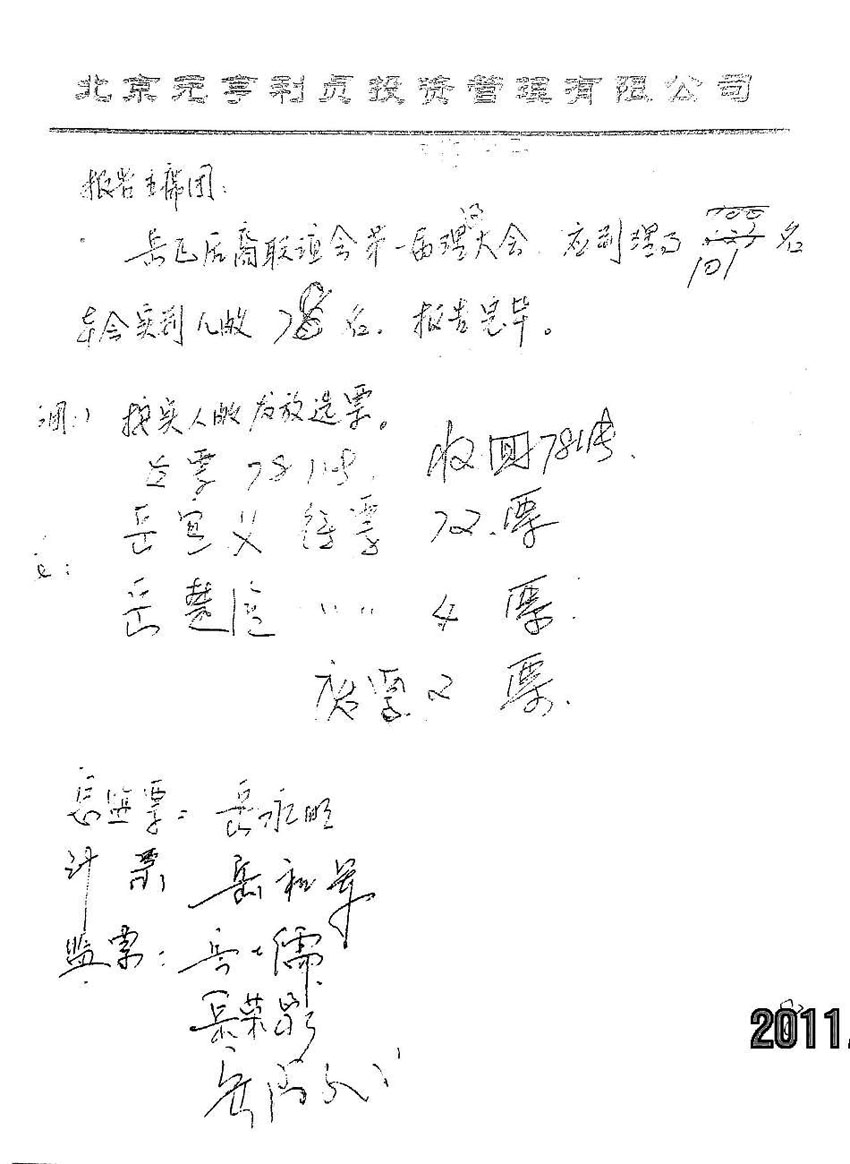 北京元亨利贞投资管理有限公司
报告主席团：
岳飞后裔联谊会第一届理事大会 应到理事 101 名
本会实到人数 78 名. 报告完毕。
按实人数发放选票。
发票 78 张. 收回 78张.
岳宜义 得票 72.票
岳楚 〃 〃 4 票.
废票 2 票.
总监票: 岳永明
计票 岳和军
监票: 岳 儒
岳荣
岳
2011.